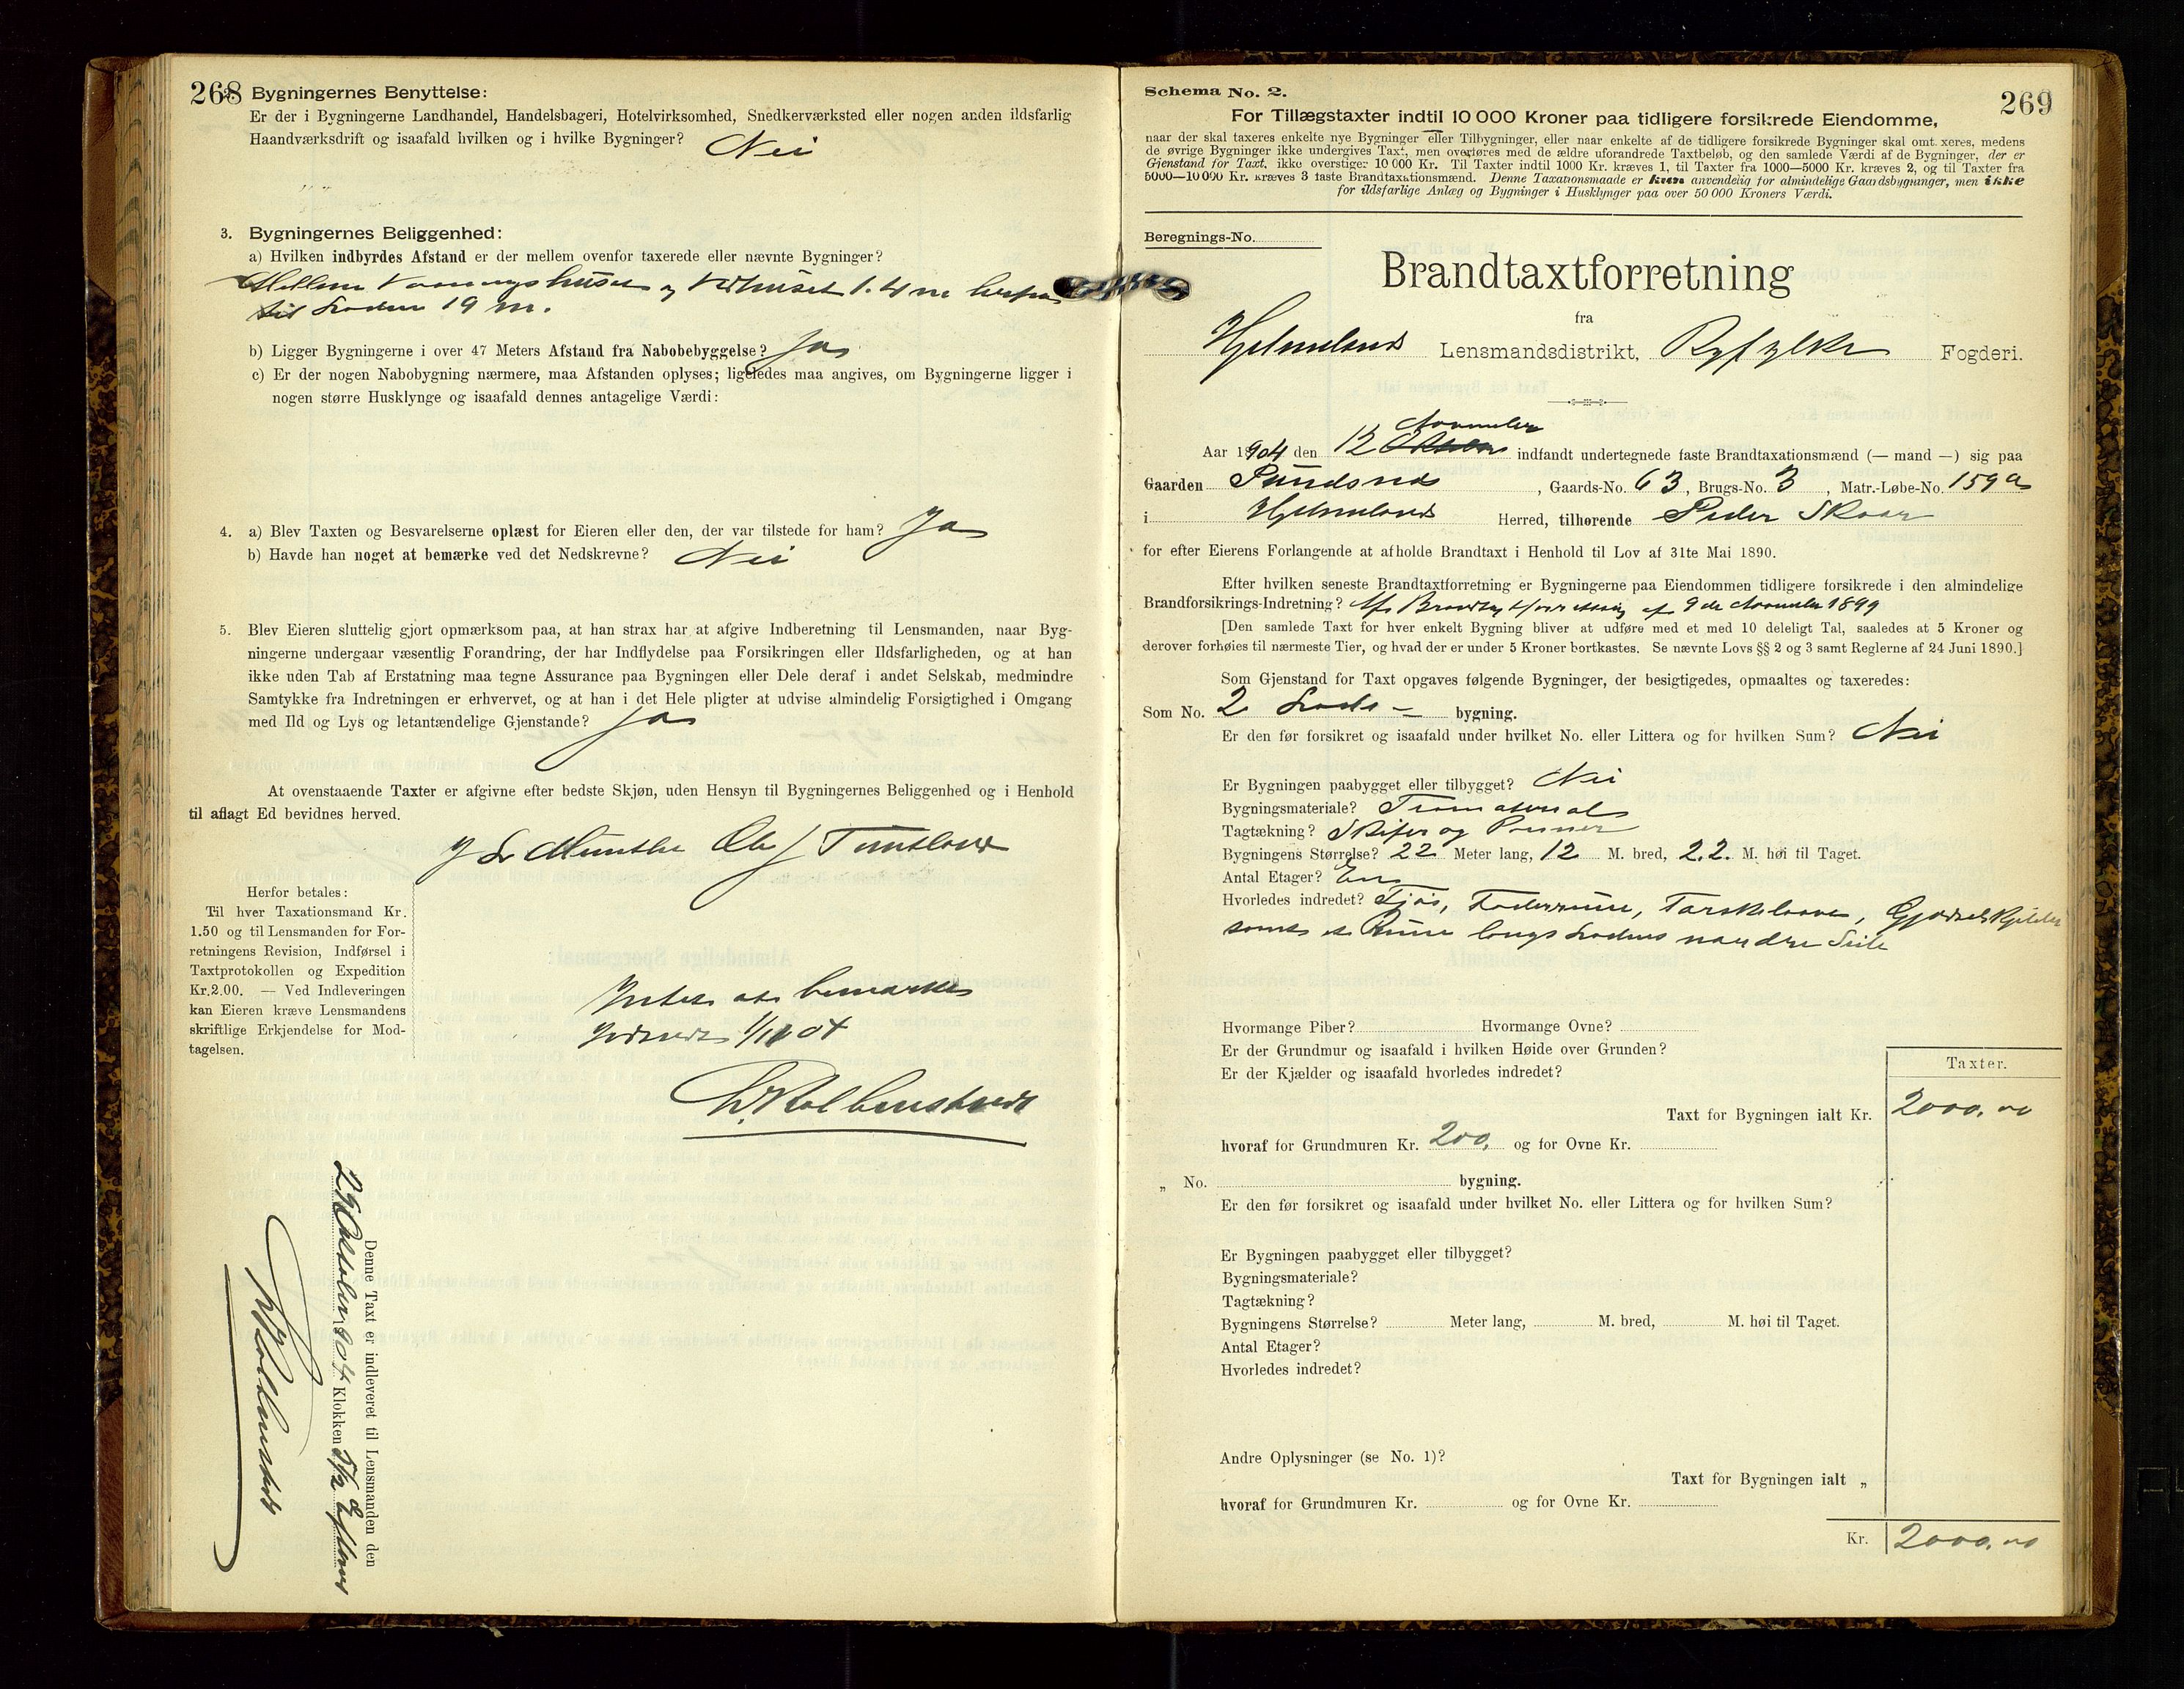 268
Bygningernes Benyttelse:
Er der i Bygningerne Landhandel, Handelsbageri, Hotelvirksomhed, Snedkerværksted eller nogen anden ildsfarlig
Haandværksdrift og isaafald hvilken og i hvilke Bygninger? Nei
3. Bygningernes Beliggenhed:
a) Hvilken indbyrdes Afstand er der mellem ovenfor taxerede eller nævnte Bygninger?
Mellem Vaaningshuset og Vedhuset 1.4 m herfra
til Laden 19 m.
b) Ligger Bygningerne i over 47 Meters Afstand fra Nabobebyggelse? Ja
c) Er der nogen Nabobygning nærmere, maa Afstanden oplyses; ligeledes maa angives, om Bygningerne ligger i
nogen større Husklynge og isaafald dennes antagelige Værdi:
4. a) Blev Taxten og Besvarelserne oplæst for Eieren eller den, der var tilstede for ham? Ja
b) Havde han noget at bemærke ved det Nedskrevne? Nei
5. Blev Eieren sluttelig gjort opmærksom paa, at han strax har at afgive Indberetning til Lensmanden, naar Byg-
ningerne undergaar væsentlig Forandring, der har Indflydelse paa Forsikringen eller Ildsfarligheden, og at han
ikke uden Tab af Erstatning maa tegne Assurance paa Bygningen eller Dele deraf i andet Selskab, medmindre
Samtykke fra Indretningen er erhvervet, og at han i det Hele pligter at udvise almindelig Forsigtighed i Omgang
med Ild og Lys og letantændelige Gjenstande? Ja
At ovenstaaende Taxter er afgivne efter bedste Skjøn, uden Hensyn til Bygningernes Beliggenhed og i Henhold
til aflagt Ed bevidnes herved.
Munthe Ole J Tuntland
Herfor betales:
Til hver Taxationsmand Kr.
1.50 og til Lensmanden for For-
retningens Revision, Indførsel i
Taxtprotokollen og Expedition
Kr.2.00. — Ved Indleveringen
kan Eieren kræve Lensmandens
skriftlige Erkjendelse for Mod-
tagelsen.
Intet at bemærke
1/11 04
W. Kolbenstvedt
Denne Taxt er indleveret til Lensmanden den
29 Oktober 1904 Klokken 5 1/2 Efterm
W. Kolbenstvedt
269
Schema No. 2.
For Tillægstaxter indtil 10 000 Kroner paa tidligere forsikrede Eiendomme,
naar der skal taxeres enkelte nye Bygninger eller Tilbygninger, eller naar enkelte af de tidligere forsikrede Bygninger skal omt.xeres, medens
de øvrige Bygninger ikke undergives Taxt, men overføres med de ældre uforandrede Taxtbeløb, og den samlede Værdi af de Bygninger, der er
Gjenstand for Taxt, ikke overstiger 10 000 Kr. Til Taxter indtil 1000 Kr. kræves 1, til Taxter fra 1000—5000 Kr. kræves 2, og til Taxter fra
5000—10 000 Kr. kræves 3 faste Brandtaxationsmænd. Denne Taxationsmaade er kun anvendelig for almindelige Gaardsbygninger, men ikke
for ildsfarlige Anlæg og Bygninger i Husklynger paa over 50 000 Kroners Værdi.
Beregnings-No.
Brandtaxtforretning
fra
Hjelmelands Lensmandsdistrikt, Ryfylke Fogderi.
November
Aar 1904 den 12 Oktober indfandt undertegnede faste Brandtaxationsmænd (— mand —) sig paa
Gaarden Pundsnes, Gaards-No. 63, Brugs-No. 3, Matr.-Løbe-No. 159 a
i Hjelmelands Herred, tilhørende Peder Skaar
for efter Eierens Forlangende at afholde Brandtaxt i Henhold til Lov af 31te Mai 1890.
Efter hvilken seneste Brandtaxtforretning er Bygningerne paa Eiendommen tidligere forsikrede i den almindelige
Brandforsikrings-Indretning? Af Brandtaxtforretning af 9de November 1899
[Den samlede Taxt for hver enkelt Bygning bliver at udføre med et med 10 deleligt Tal, saaledes at 5 Kroner og
derover forhøies til nærmeste Tier, og hvad der er under 5 Kroner bortkastes. Se nævnte Lovs §§ 2 og 3 samt Reglerne af 24 Juni 1890.]
Som Gjenstand for Taxt opgaves følgende Bygninger, der besigtigedes, opmaaltes og taxeredes:
Som No. 2 Lade - bygning.
Er den før forsikret og isaafald under hvilket No. eller Littera og for hvilken Sum? Nei
Er Bygningen paabygget eller tilbygget? Nei
Bygningsmateriale? Træmaterial
Tagtækning? Skifer og Panner
Bygningens Størrelse? 22 Meter lang, 12 M. bred, 2.2. M. høi til Taget.
Antal Etager? En
Hvorledes indredet? Fjøs, Foderrum, Tærskelaave, Gjødselkjelder
samt et Rum langs Ladens nordre Side
Hvormange Piber? Hvormange Ovne?
Er der Grundmur og isaafald i hvilken Høide over Grunden?
Er der Kjælder og isaafald hvorledes indredet?
Taxter.
Taxt for Bygningen ialt Kr. 2000.00
hvoraf for Grundmuren Kr. 200, og for Ovne Kr.
„ No. bygning.
Er den før forsikret og isaafald under hvilket No. eller Littera og for hvilken Sum?
Er Bygningen paabygget eller tilbygget?
Bygningsmateriale?
Tagtækning?
Bygningens Størrelse? Meter lang, M. bred, M. høi til Taget.
Antal Etager?
Hvorledes indredet?
Andre Oplysninger (se No. 1)?
Taxt for Bygningen ialt „
hvoraf for Grundmuren Kr. og for Ovne Kr.
Kr. 2000.00